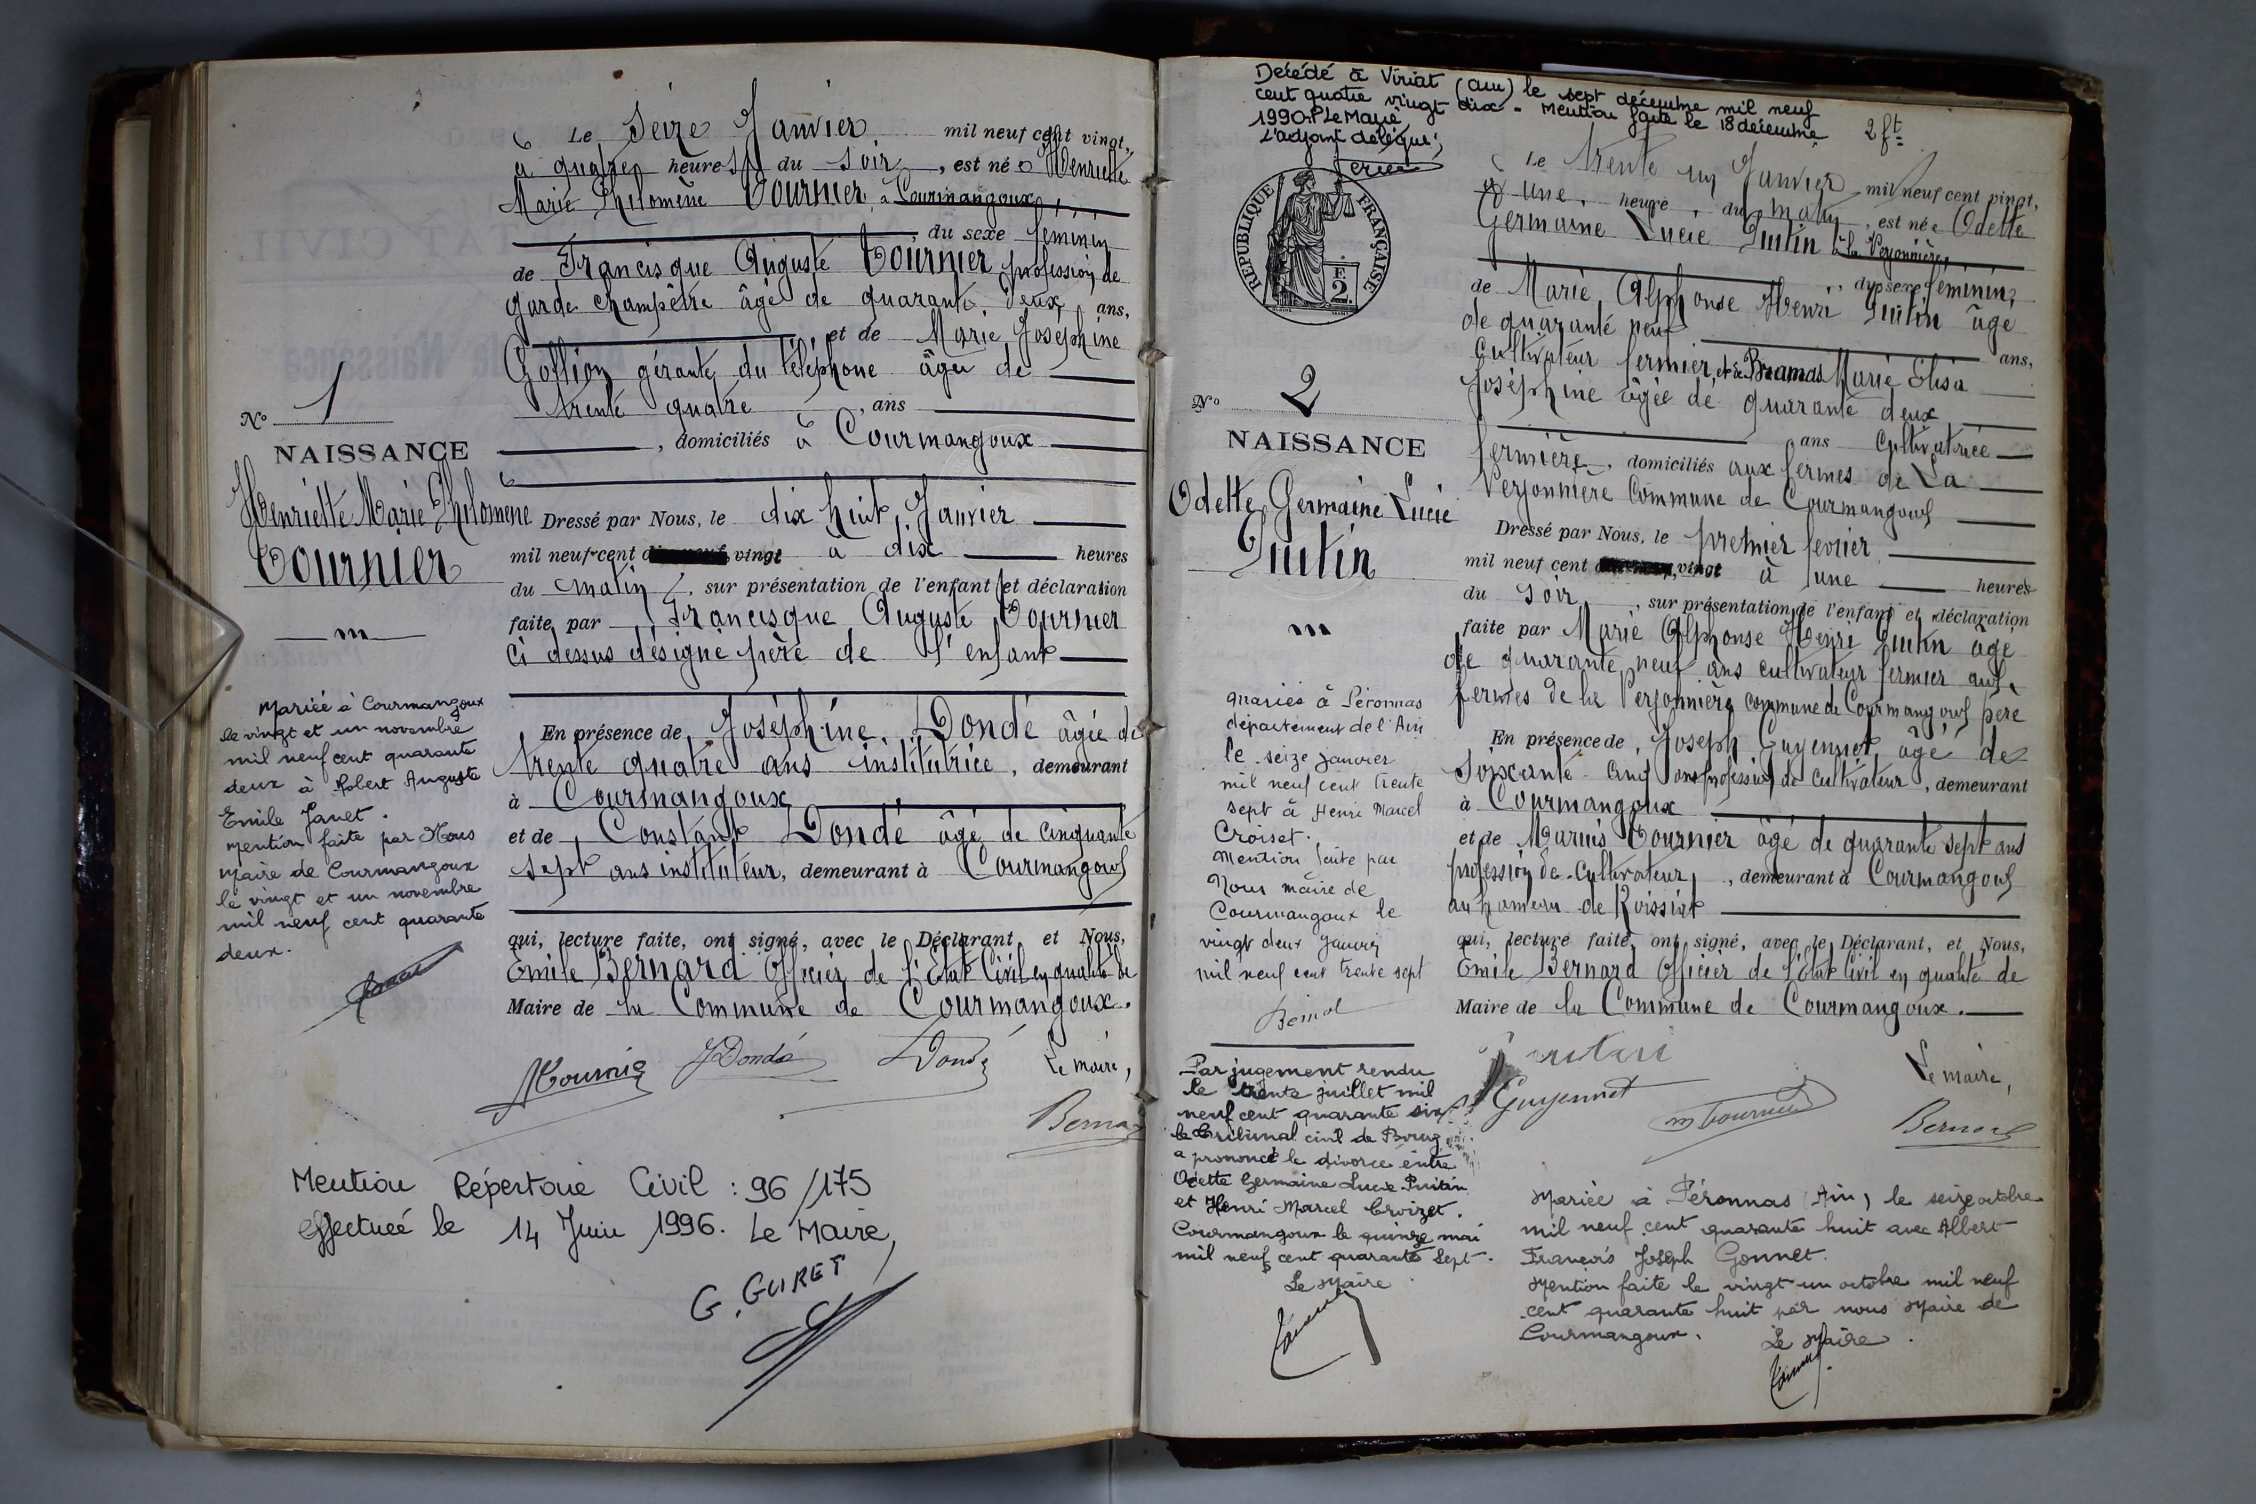 Le Seize Janvier mil neuf cent vingt,
à quatre heures du soir, est née Henriette
Marie Philomène Tournier, à Courmangoux
du sexe feminin
de Francisque Auguste Tournier profession de
garde champêtre âgé de quarante deux ans,
et de Marie Joséphine
gérante du téléphone âgée de
trente quatre, ans
, domiciliés à Courmangoux
No 1
NAISSANCE
Henriette Marie Philomene
Tournier
Dressé par Nous, le dix huit Janvier
mil neuf cent vingt à dix heures
du matin, sur présentation de l'enfant et déclaration
faite par Francisque Auguste Tournier
ci dessus désigné père de l'enfant
En présence de Joséphine Dondé âgée de
trente quatre ans institutrice, demeurant
à Courmangoux
et de Constant Dondé âgé de cinquante
sept ans instituteur, demeurant à Courmangoux
qui, lecture faite, ont signé, avec le Déclarant et Nous,
Emile Bernard Officier de l'Etat Civil en qualité de
Maire de la Commune de Courmangoux.
Tournier JDondé Dondé Le maire,
Bernard
Mariée à Courmangoux
le vingt et un novembre
mil neuf cent quarante
deux à Robert Auguste
Emile Janet.
Mention faite par Nous
Maire de Courmangoux
le vingt et un novembre
mil neuf cent quarante
deux.
Mention Répertoire Civil : 96/175
effectuée le 14 Juin 1996. Le Maire,
G. GUIRET
Décédé à Viriat (Ain) le sept décembre mil neuf
cent quatre vingt dix - Mention faite le 18 décembre
1990. P/Le Maire
L'adjoint délégué;
2 ft
REPUBLIQUE FRANÇAISE
F.
2.
Le trente un Janvier mil neuf cent vingt,
à une, heure, du matin, est née Odette
Germaine Lucie Puitin à la Verjonnière,
du sexe féminin,
de Marie Alphonse Henri Puitin âgé
de quarante neuf ans,
cultivateur fermier, et de Bramas Marie Elisa
Joséphine âgée de quarante deux
ans cultivatrice
fermière, domiciliés aux fermes de La
Verjonnière Commune de Courmangoux
No 2
NAISSANCE
Odette Germaine Lucie
Puitin
Dressé par Nous, le premier fevrier
mil neuf cent vingt à une heures
du soir, sur présentation de l'enfant et déclaration
faite par Marie Alphonse Henri Puitin âgé
de quarante neuf ans cultivateur fermier aux
fermes de la Verjonnière commune de Courmangoux père
En présence de, Joseph Guyennet, âgé de
soixante cinq ans profession de cultivateur, demeurant
à Courmangoux
et de Marius Tournier âgé de quarante sept ans
profession de cultivateur, demeurant à Courmangoux
au hameau de Roissiat
qui, lecture faite, ont signé, avec le Déclarant, et Nous,
Emile Bernard Officier de l'Etat Civil en qualité de
Maire de la Commune de Courmangoux.
Puitin Le maire,
Guyennet m tournier Bernard
Mariés à Péronnas
département de l'Ain
le seize janvier
mil neuf cent trente
sept à Henri Marcel
Croiset.
Mention faite par
Nous maire de
Courmangoux le
vingt deux janvier
mil neuf cent trente sept
Par jugement rendu
le trente juillet mil
neuf cent quarante six
le tribunal civil de Bourg
a prononcé le divorce entre
Odette Germaine Lucie Puitin
et Henri Marcel Croizet.
Courmangoux le quinze mai
mil neuf cent quarante sept.
Le Maire
Mariée à Péronnas (Ain) le seize octobre
mil neuf cent quarante huit avec Albert
François Joseph Gonnet.
Mention faite le vingt-un octobre mil neuf
cent quarante huit par nous Maire de
Courmangoux.
Le Maire.